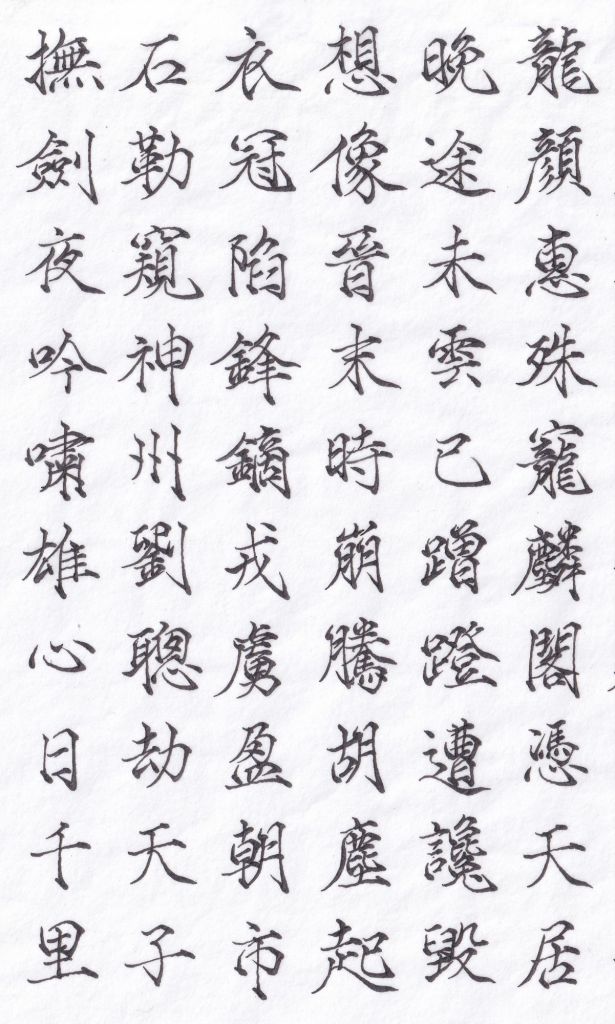 龍顏惠殊寵麟閣憑天居
晚途未雲已蹭蹬遭讒毀
想像晉末時崩騰胡塵起
衣冠陷鋒鏑戎虜盈朝市
石勒窺神州劉聰劫天子
撫劍夜吟嘯雄心日千里